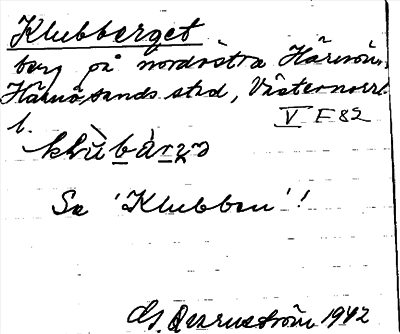 Klubberget
berg på nordöstra Härnön,
Härnösands stad, Västernorrl.
l. V F 82
Se 'Klubben'!
1942